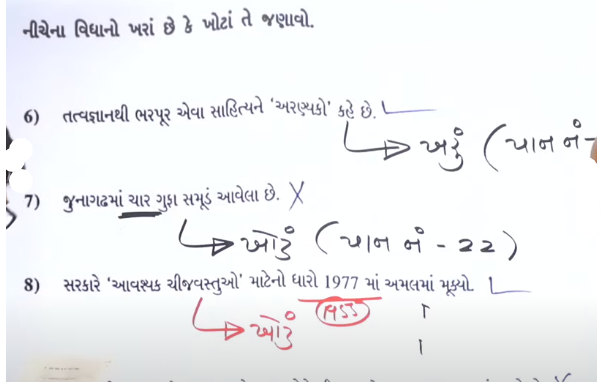 નીચેના વિધાનો ખરાં છે કે ખોટાં તે જણાવો.
6) તત્વજ્ઞાનથી ભરપૂર એવા સાહિત્યને ‘અરણ્યકો’ કહે છે.
ખરું (પાન નં-
7) જુનાગઢમાં ચાર ગુફા સમૂહ આવેલા છે. X
ખોટું (પાન નં - 22)
8) સરકારે ‘આવશ્યક ચીજવસ્તુઓ’ માટેનો ધારો 1977 માં અમલમાં મૂક્યો.
ખોટું 1955